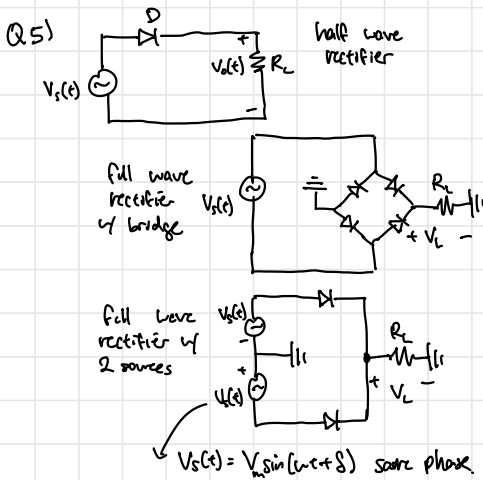 Q5)
D
+
Vs(t)
Vo(t)
RL
-
half wave
rectifier
full wave
rectifier
w/ bridge
Vs(t)
RL
+ VL -
full wave
rectifier w/
2 sources
Vs(t)
-
+
Vs(t)
RL
+ VL -
Vs(t) = Vm sin(wt+δ) same phase